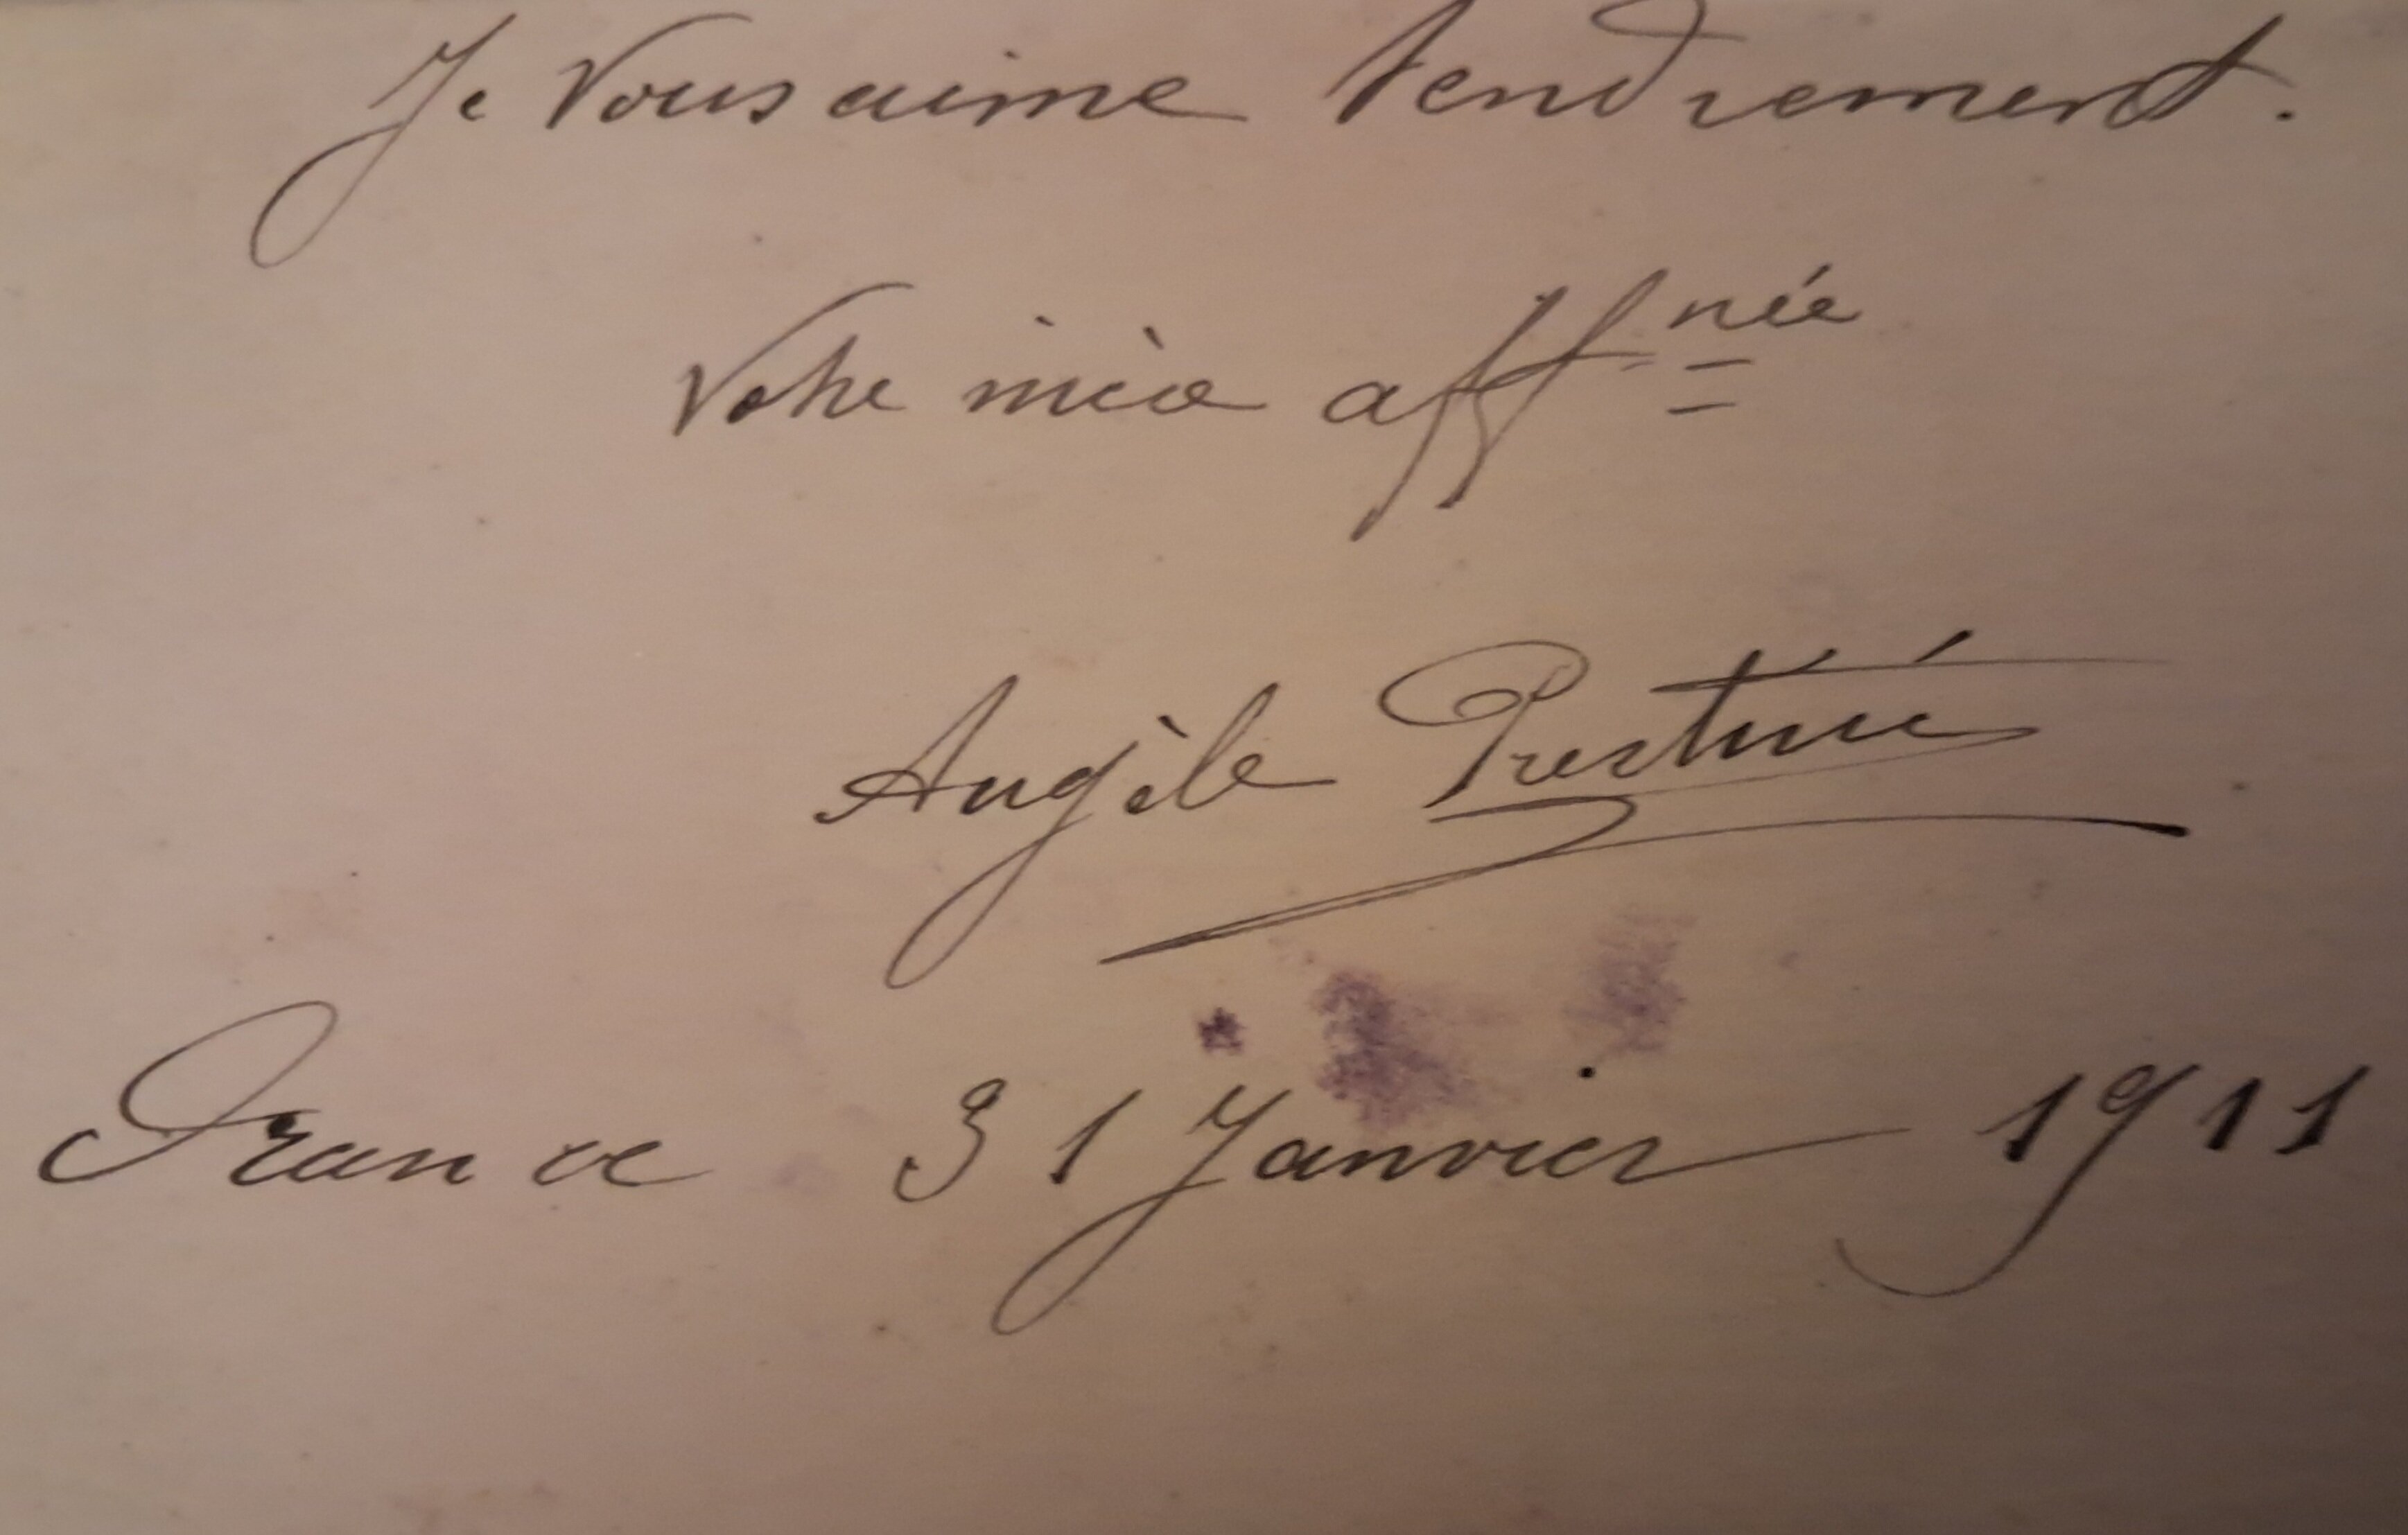 Je vous aime tendrement.
Votre nièce aff née
Angèle
France 31 Janvier 1911